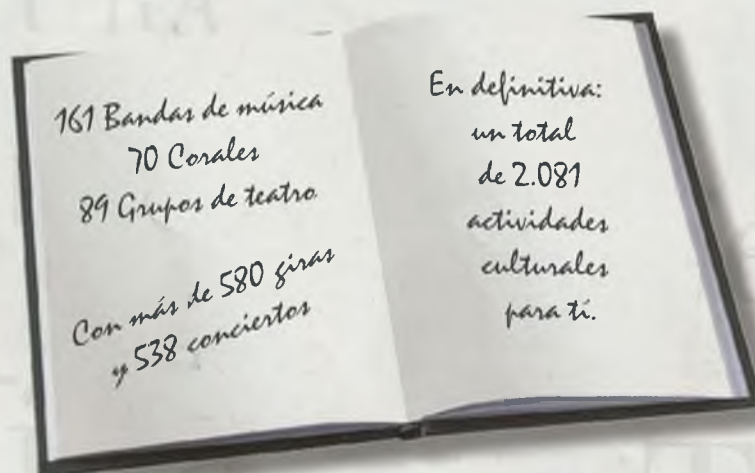 161 Bandas de música
70 Corales
89 Grupos de teatro
Con más de 580 giras
y 538 conciertos
En definitiva:
un total
de 2.081
actividades
culturales
para tí.